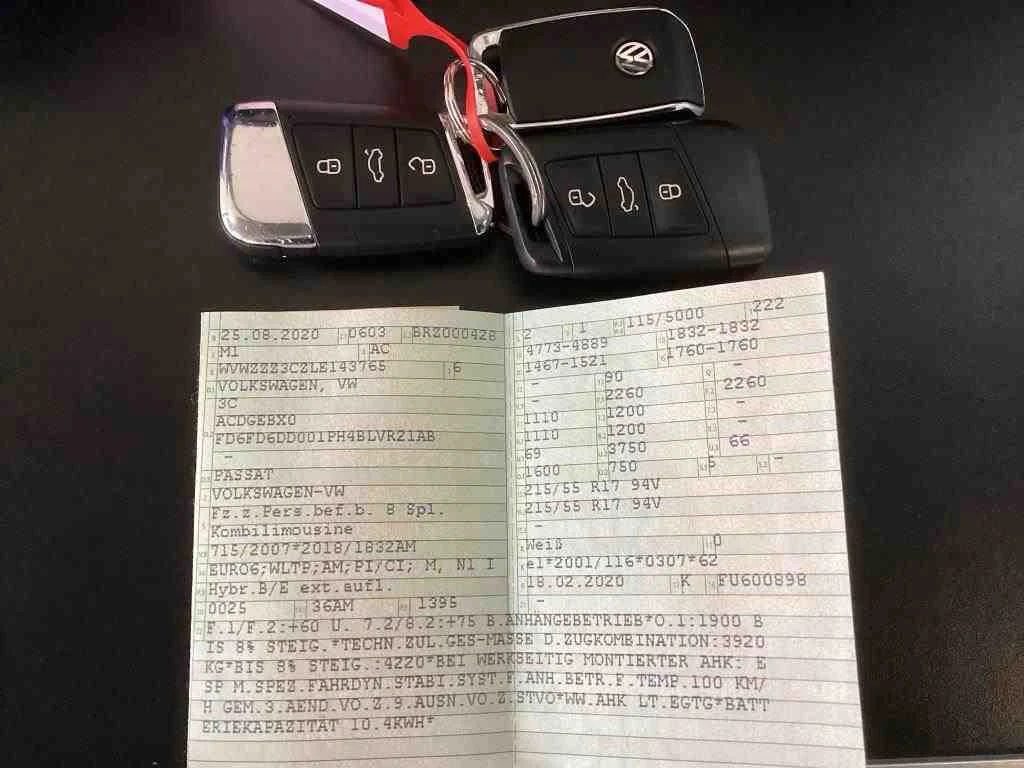 25.08.2020 0603 BRZ000428
M1 AC
WVWZZZ3CZLE143765 6
VOLKSWAGEN, VW
3C
ACDGEBX0
FD6FD6DD001PH4BLVR21AB
-
PASSAT
VOLKSWAGEN-VW
Fz.z.Pers.bef.b. 8 Spl.
Kombilimousine
715/2007*2018/1832AM
EURO6;WLTP;AM;PI/CI; M, N1 I
Hybr.B/E ext.aufl.
0025 36AM 1395
2 1 115/5000 222
4773-4889 1832-1832
1467-1521 1760-1760
- 90 -
- 2260 2260
1110 1200 -
1110 1200 -
69 3750 66
1600 750 5 -
215/55 R17 94V
215/55 R17 94V
-
Weiß 0
e1*2001/116*0307*62
18.02.2020 K FU600898
-
F.1/F.2:+60 U. 7.2/8.2:+75 B.ANHÄNGEBETRIEB*O.1:1900 B
IS 8% STEIG.*TECHN.ZUL.GES-MASSE D.ZUGKOMBINATION:3920
KG*BIS 8% STEIG.:4220*BEI WERKSEITIG MONTIERTER AHK: E
SP M.SPEZ.FAHRDYN.STABI.SYST.F.ANH.BETR.F.TEMP.100 KM/
H GEM.3.AEND.VO.Z.9.AUSN.VO.Z.STVO*WW.AHK LT.EGTG*BATT
ERIEKAPAZITÄT 10.4KWH*